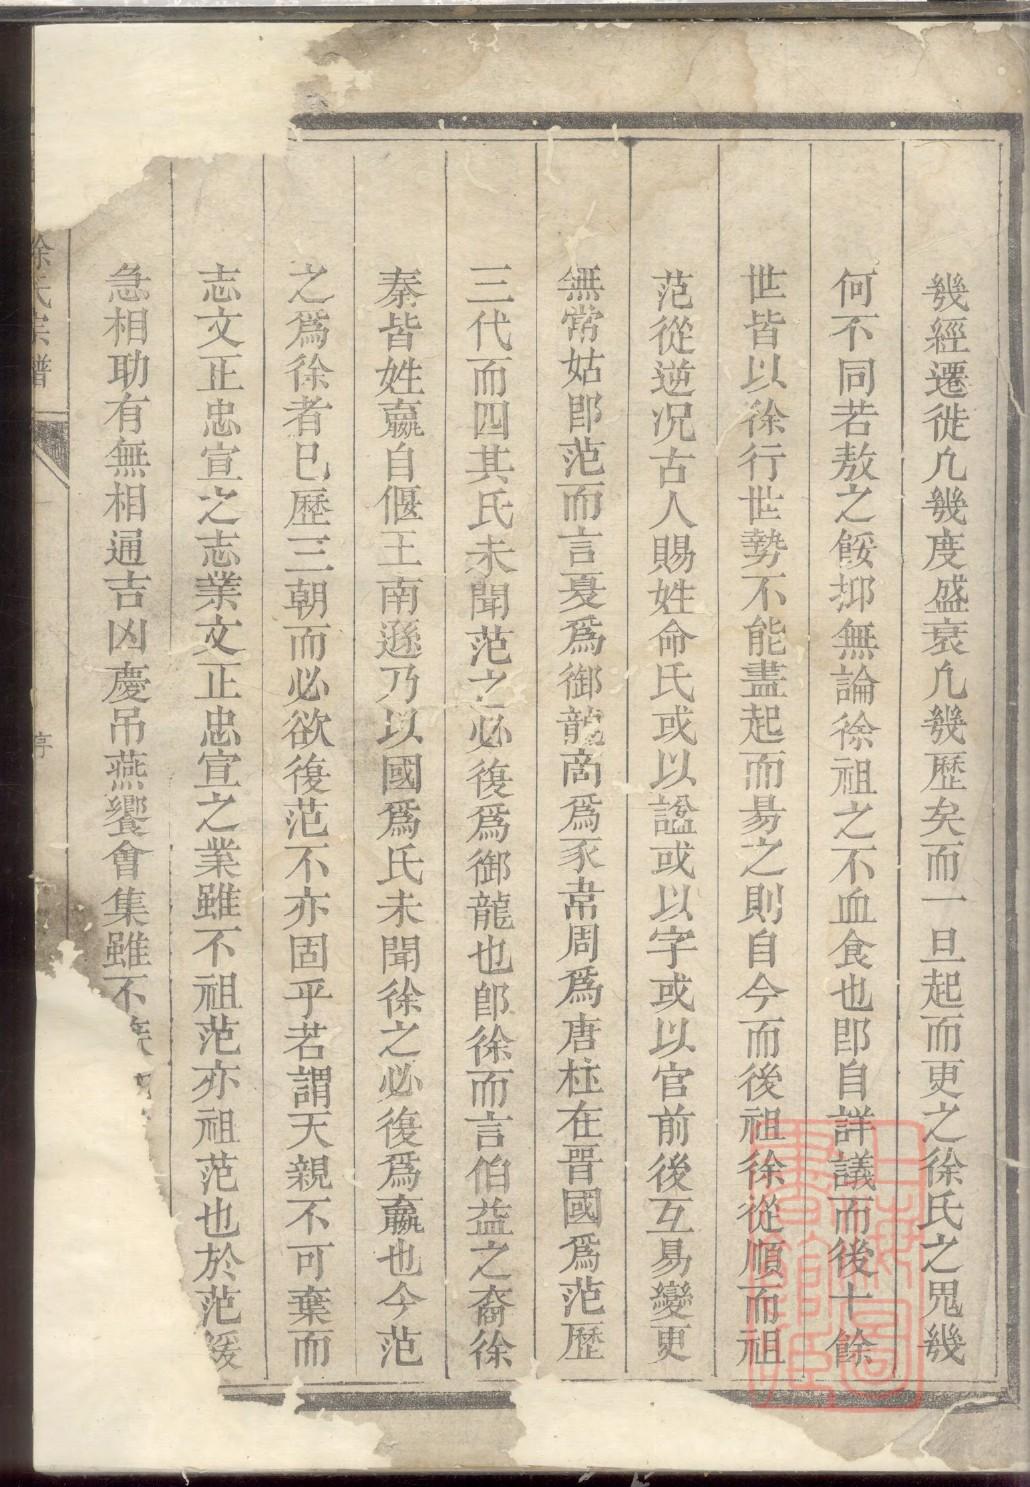 幾經遷徙凢幾度盛衰凢幾歷矣而一旦起而更之徐氏之鬼幾
何不同若敖之餒抑無論徐祖之不血食也卽自詳議而後十餘
世皆以徐行世勢不能盡起而昜之則自今而後祖徐從順而祖
范從逆况古人賜姓命氏或以諡或以字或以官前後互易變更
無常姑卽范而言憂爲御龍啇爲豕韋周爲唐杜在晋國爲范歷
三代而四其氏未聞范之必復爲御龍也卽徐而言伯益之裔徐
秦皆姓嬴自偃王南遜乃以國爲氏未聞徐之必復爲嬴也今范
之爲徐者已歷三朝而必欲復范不亦固乎若謂天親不可棄而
志文正忠宣之志業文正忠宣之業雖不祖范亦祖范也於范緩
急相助有無相通吉凶慶吊燕饗會集雖不
徐氏宗譜
序
上海圖書館藏